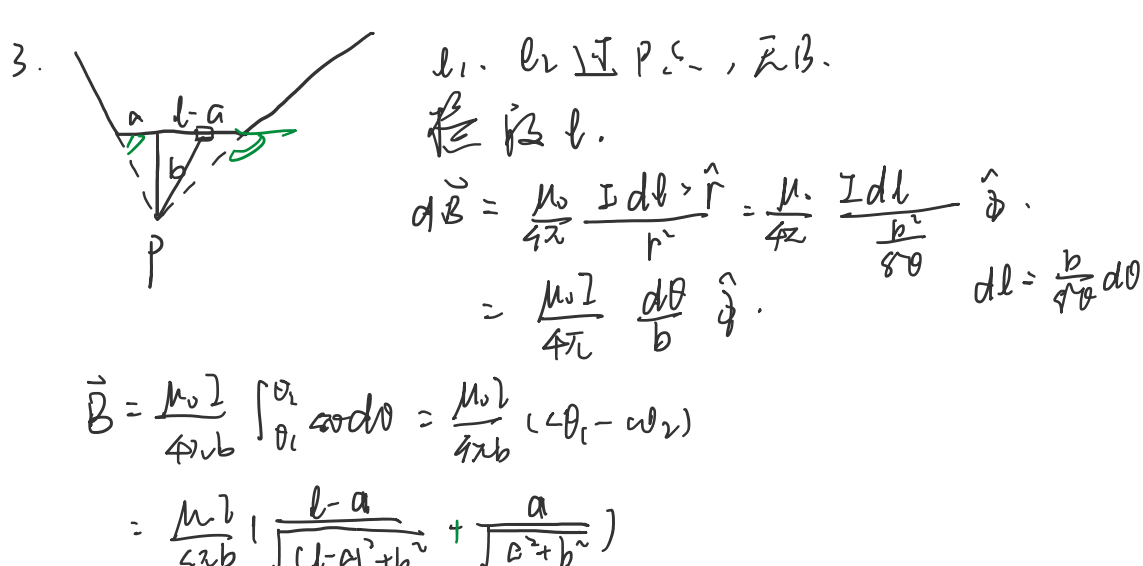 3.
a l-a
b
P
l₁. l₂ 过 P 点, 无B.
段 l.
d\vec{B} = \frac{μ₀}{4π} \frac{I dl × \hat{r}}{r²} = \frac{μ₀}{4π} \frac{I dl}{\frac{b²}{sinθ}} \hat{φ}.
dl = \frac{b}{sinθ} dθ
= \frac{μ₀I}{4π} \frac{dθ}{b} \hat{φ}.
\vec{B} = \frac{μ₀I}{4πb} \int_{θ₁}^{θ₂} dθ = \frac{μ₀I}{4πb} (cosθ₁ - cosθ₂)
= \frac{μ₀I}{4πb} ( \frac{l-a}{\sqrt{(l-a)²+b²}} + \frac{a}{\sqrt{a²+b²}} )